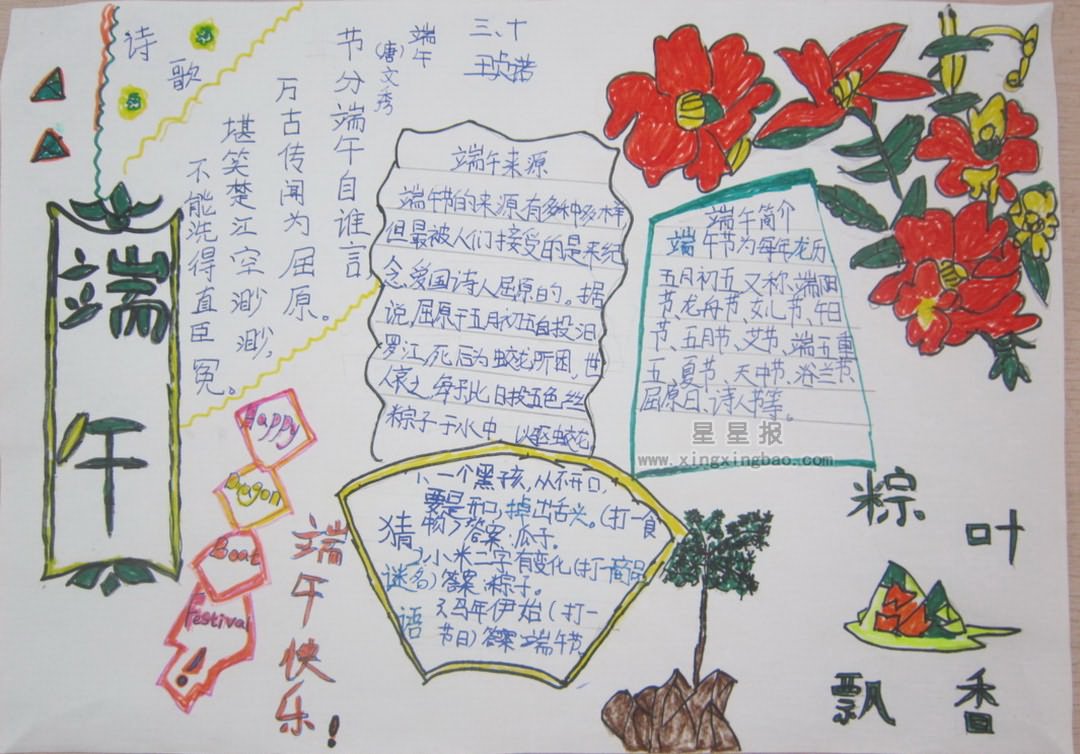 诗
歌
端午
(唐)文秀
节分端午自谁言
万古传闻为屈原。
堪笑楚江空渺渺,
不能洗得直臣冤。
三、十
端午
端午来源
端午节的来源,有多种多样
但最被人们接受的是来纪
念爱国诗人屈原的。据
说,屈原于五月初五自投汨
罗江,死后为蛟龙所困,世
人哀之,每于此日投五色丝
粽子于水中,以驱蛟龙
端午简介
端午节为每年龙历
五月初五,又称端阳
节、龙舟节、女儿节、午日
节、五月节、艾节、端五、重
五、夏节、天中节、浴兰节、
屈原日、诗人节等。
星星报
www.xingxingbao.com
Happy
Dragon
Boat
Festival
!
端午快乐!
猜谜语
1、一个黑孩,从不开口,
要是开口,掉出舌头。(打一食
物)答案:瓜子。
2、小米二字有变化(打一商品
名)答案:粽子。
3、马年伊始(打一
节日)答案:端午节。
粽
叶
飘
香